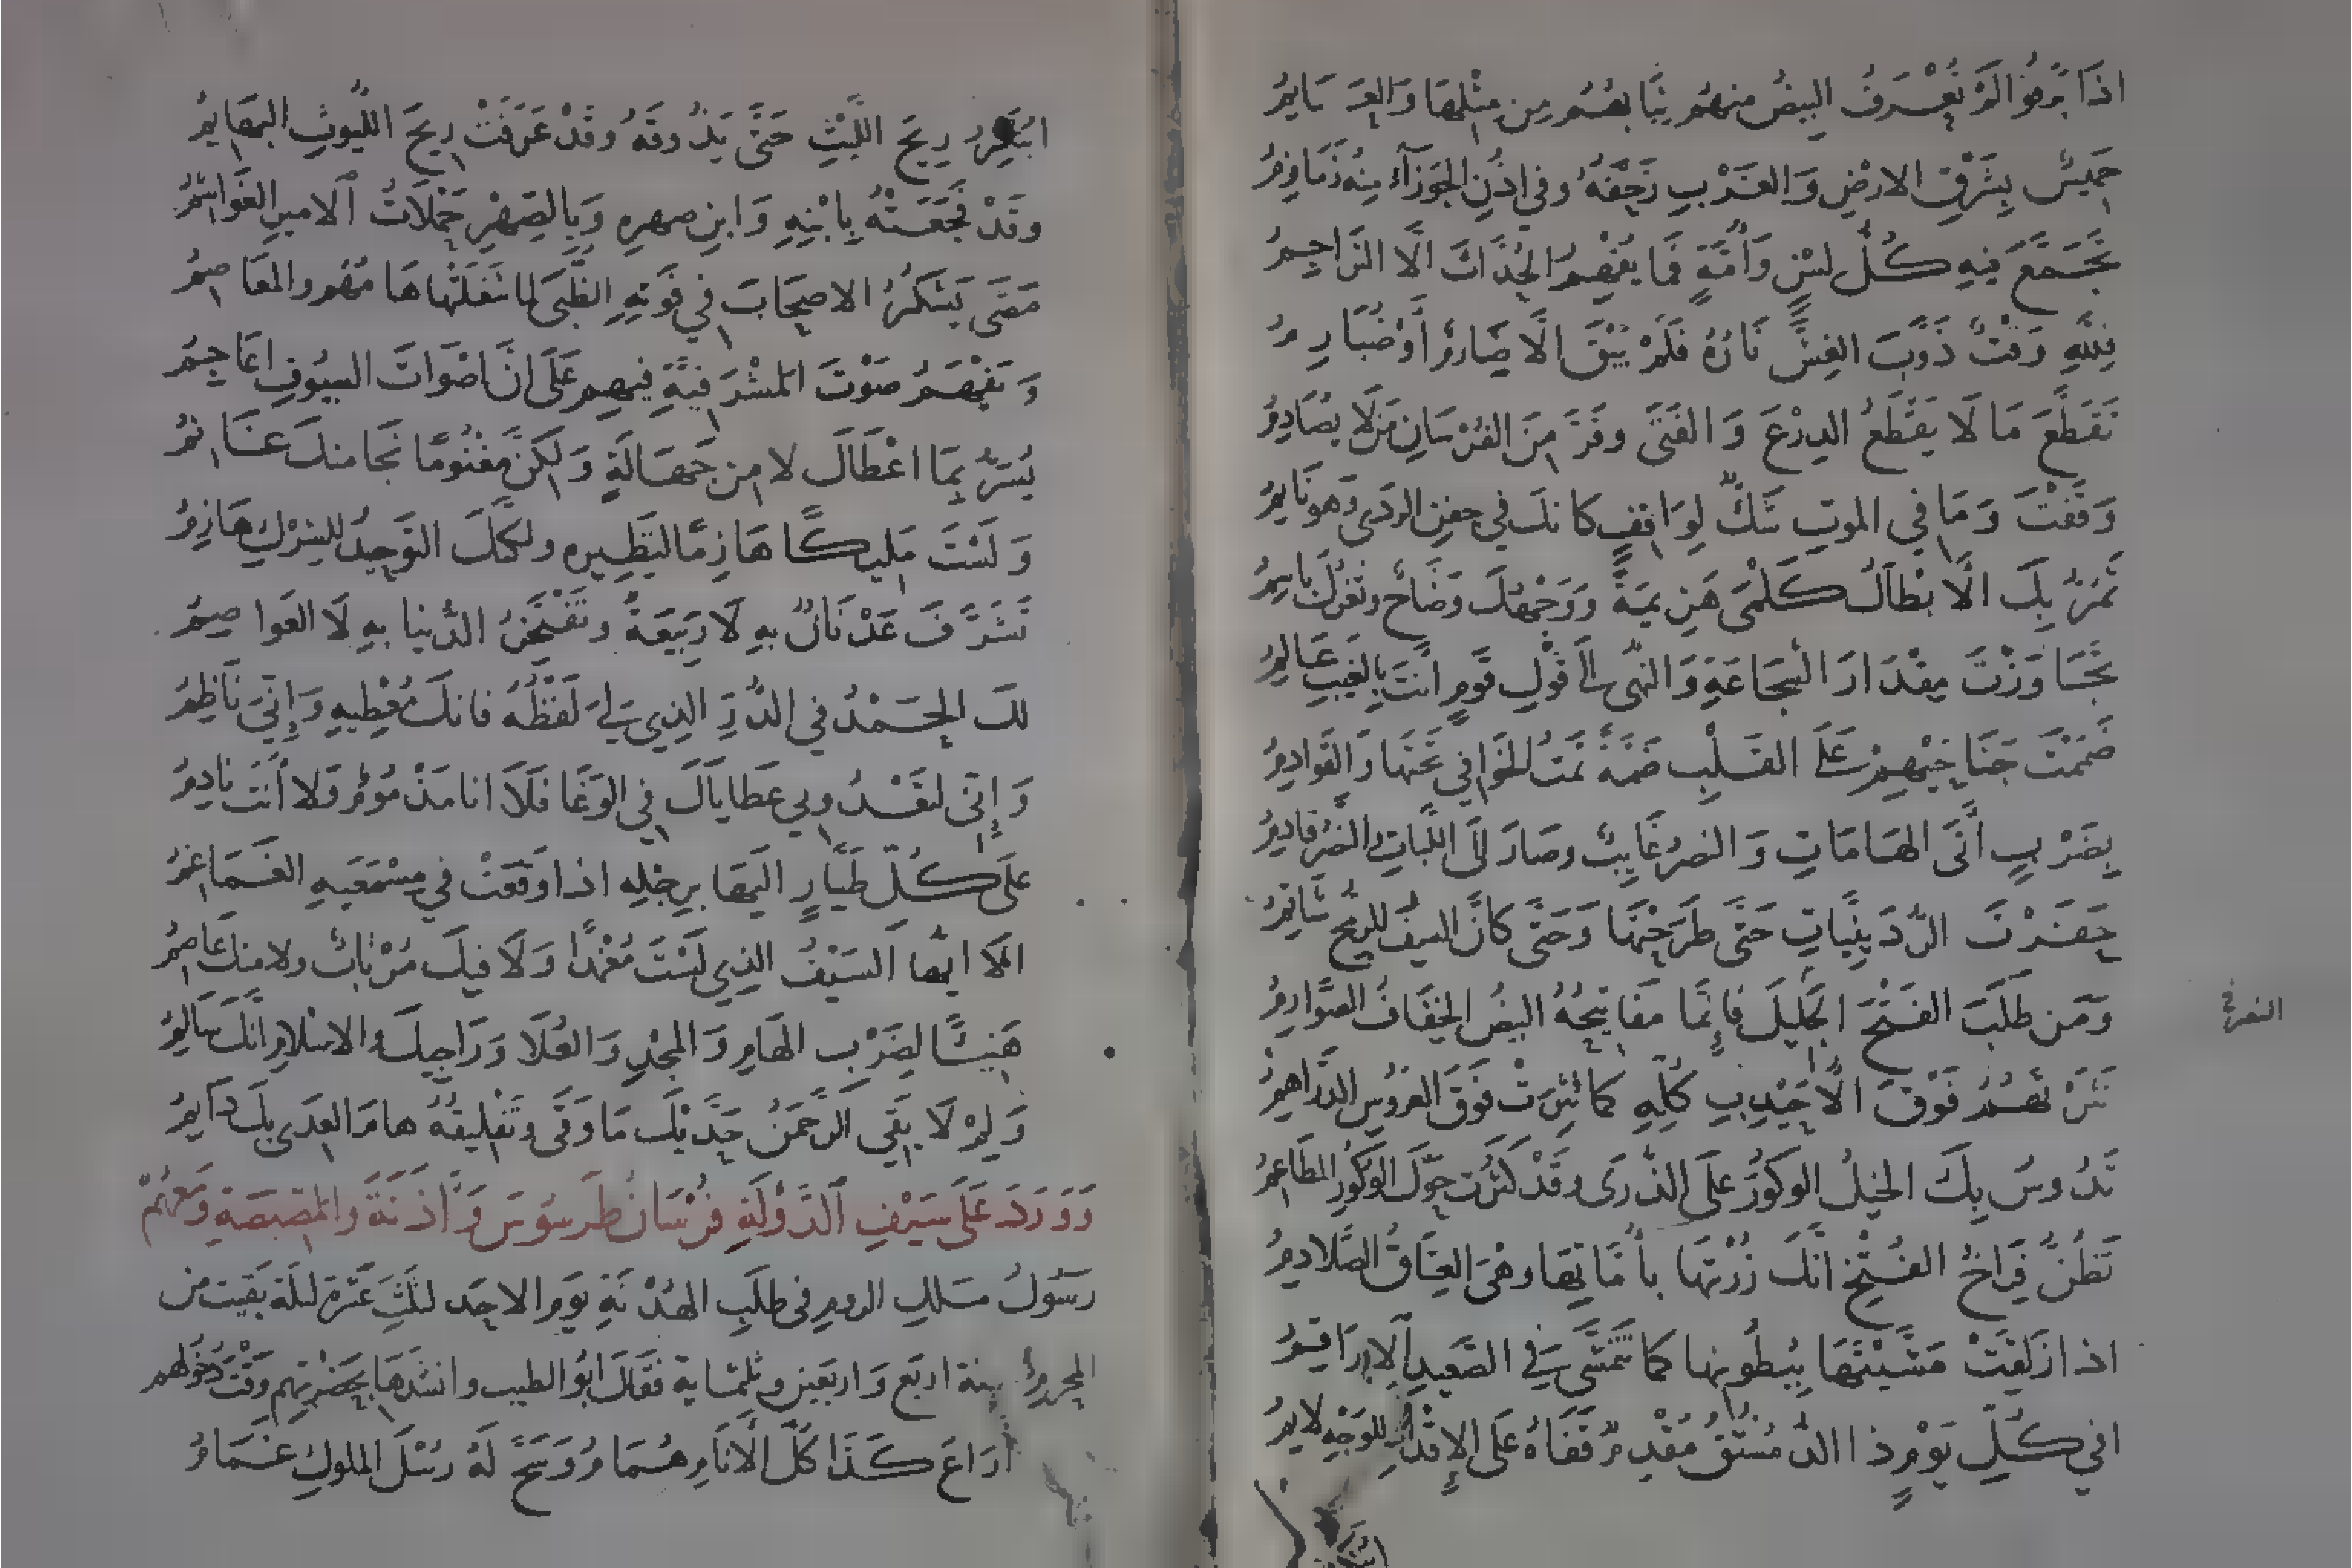 اذَا بَرَقُوا لَمْ تُعْرَفُ البِيضُ مِنهُم ثِيَابُهُم مِن مِثْلِهَا وَالعَمَايمُ
خَمِيسٌ بِشَرْقِ الارْضِ وَالغَرْبِ زَحْفُهُ وفي اذُنِ الجَوزَآءِ مِنهُ زَمَازِمُ
تَجَمَّعَ فِيهِ كُلُّ لِسْنٍ وَأُمَّةٍ فَمَا يُفْهِمُ الحُدَّاثَ الَّا التَرَاجِمُ
فَلِلَّهِ وَقْتٌ ذَوَّبَ الغِشَّ نَارُهُ فَلَمْ يَبْقَ الَّا صَارِمٌ أَوْ ضُبَارِمُ
تَقَطَّعَ مَا لَا يَقْطَعُ الدِرْعَ وَالقَنَى وفَرَّ مِنَ الفُرْسَانِ مَن لَا يُصَادِمُ
وَقَفْتَ وَمَا في الموتِ شَكٌّ لِوَاقِفٍ كانكَ في جفنِ الردَى وَهو نَايمُ
تَمُرُّ بِكَ الَابْطَالُ كَلْمَى هَزِيمَةً وَوَجْهُكَ وَضَّاحٌ وثَغْرُكَ بَاسِمُ
تَجَاوَزْتَ مِقْدَارَ الشَجَاعَةِ وَالنُهَى الَى قَوْلِ قَومٍ انتَ بِالغَيبِ عَالِمُ
ضَمَمْتَ جَنَاحَيْهِمْ عَلَى القَلْبِ ضَمَّةً تَمُتُ الخَوَافِي تَحْتَهَا وَالقَوَادِمُ
بِضَرْبٍ أَتَى الهَامَاتِ وَالنصرُ غَايِبٌ وصَارَ الَى اللَّبَاتِ والنَصْرُ قادِمُ
حَقَرْتَ الرُّدَيْنِيَّاتِ حَتَّى طَرَحْتَهَا وَحَتَّى كَانَّ السَيفَ للرُمحِ شَاتِمُ
وَمَن طَلَبَ الفَتْحَ الجَلِيلَ فَإِنَّمَا مَفَاتِيحُهُ البيضُ الخِفَافُ الصَّوَارِمُ
نَثَرْتَهُمُ فَوْقَ الَاحَيْدِبِ كُلِّهِ كما نُثِرَتْ فَوْقَ العَرُوسِ الدَّرَاهِمُ
تَدُوسُ بِكَ الخَيلُ الوُكُورَ عَلَى الذُّرَى وقَدْ كَثُرَت حَوْلَ الوُكُورِ المَطَاعِمُ
تَظُنُّ فِرَاخُ الفُتْخِ انَّكَ زُرْتَهَا بأُمَّاتِهَا وهْيَ العِتَاقُ الصَّلادِمُ
اذا زَلِقَتْ مَشَّيْتَهَا بِبُطُونِها كمَا تَتَمَشَّى في الصَعِيدِ الَارَاقِمُ
افي كُلِّ يَوْمٍ ذا الدُّمُسْتُقُ مُقْدِمٌ قَفَاهُ عَلَى الإِقْدَامِ للوَجْهِ لايمُ
ايُنْكِرُ رِيحَ اللَّيْثِ حَتَّى يَذُوقَهُ وقَدْ عَرَفَتْ رِيحَ اللُّيوثِ البهَايمُ
وقَدْ فَجَعَتْهُ بِابْنِهِ وَابنِ صِهرِهِ وَبِالصِهْرِ حَمْلَاتُ الامِيرِ الغَوَاشِمُ
مَضَى يَشْكُرُ الاصحَابَ في فَوتِهِ الظُّبَى لما شَغَلَتْهَا هَامُهُم والمعَاصِمُ
وَيَفْهَمُ صَوْتَ المَشْرَفِيَّةِ فِيهِم عَلَى انَّ اصْوَاتَ السيُوفِ اعَاجِمُ
يُسَرُّ بِمَا اعْطَاكَ لا مِن جَهَالَةٍ وَلكِنَّ مَغْنُومًا نَجَا منكَ غَانِمُ
وَلَسْتَ مَلِيكًا هَازِمًا لِنَظِيرِهِ ولكنَّكَ التَوحِيدُ للشِرْكِ هَازِمُ
تَشَرَّفَ عَدْنَانٌ بهِ لَا رَبِيعَةٌ وتَفْتَخِرُ الدُّنيا بِهِ لَا العَواصِمُ
لكَ الحَمْدُ في الدُّرِّ الذِي لِيَ لَفْظُهُ فانكَ مُعْطِيهِ وَإِنِّيَ نَاظِمُ
وَإِنِّي لتَعْدُو بي عَطَايَاكَ فِي الوَغَا فَلَا انا مَذْمُومٌ وَلا أَنتَ نادِمُ
عَلَى كُلِّ طَيَّارٍ الَيهَا بِرِجْلِهِ اذا وَقَعَتْ في مِسْمَعَيهِ الغَمَاغِمُ
الَا ايُّها السَيْفُ الذِي لَسْتَ مُغْمَدًا وَلَا فِيكَ مُرْتابٌ ولا مِنكَ عَاصِمُ
هَنِيئًا لِضَرْبِ الهَامِ وَالمجْدِ وَالعُلَا وَرَاجِيكَ وَالاسْلامِ انَّكَ سَالِمُ
وَلِمْ لَا يَقِي الرَحْمَنُ حَدَّيْكَ مَا وَقَى وتَفْلِيقُهُ هامَ العِدَى بِكَ دَآيمُ
وَوَرَدَ عَلَى سَيْفِ الدَّوْلَةِ فُرْسَانُ طَرسُوسَ وَأَذَنَةَ والمَصِّيصَةِ وَمَعَهُمْ
رَسُولُ مَلِكِ الرومِ في طَلَبِ الهُدْنَةِ يَومَ الاحَد لثَلَثَ عَشَرةَ ليلَة بَقِيَت من
المحرم سنة اربَع وَاربَعين وثلثماية فقالَ ابُو الطيب وانشدَهَا بحَضْرَتِهم وَقْتَ دُخُولهم
أَرَاعَ كَذَا كُلَّ الَانَامِ هُمَامُ وَسَحَّ لَهُ رُسْلَ الملوكِ غَمَامُ